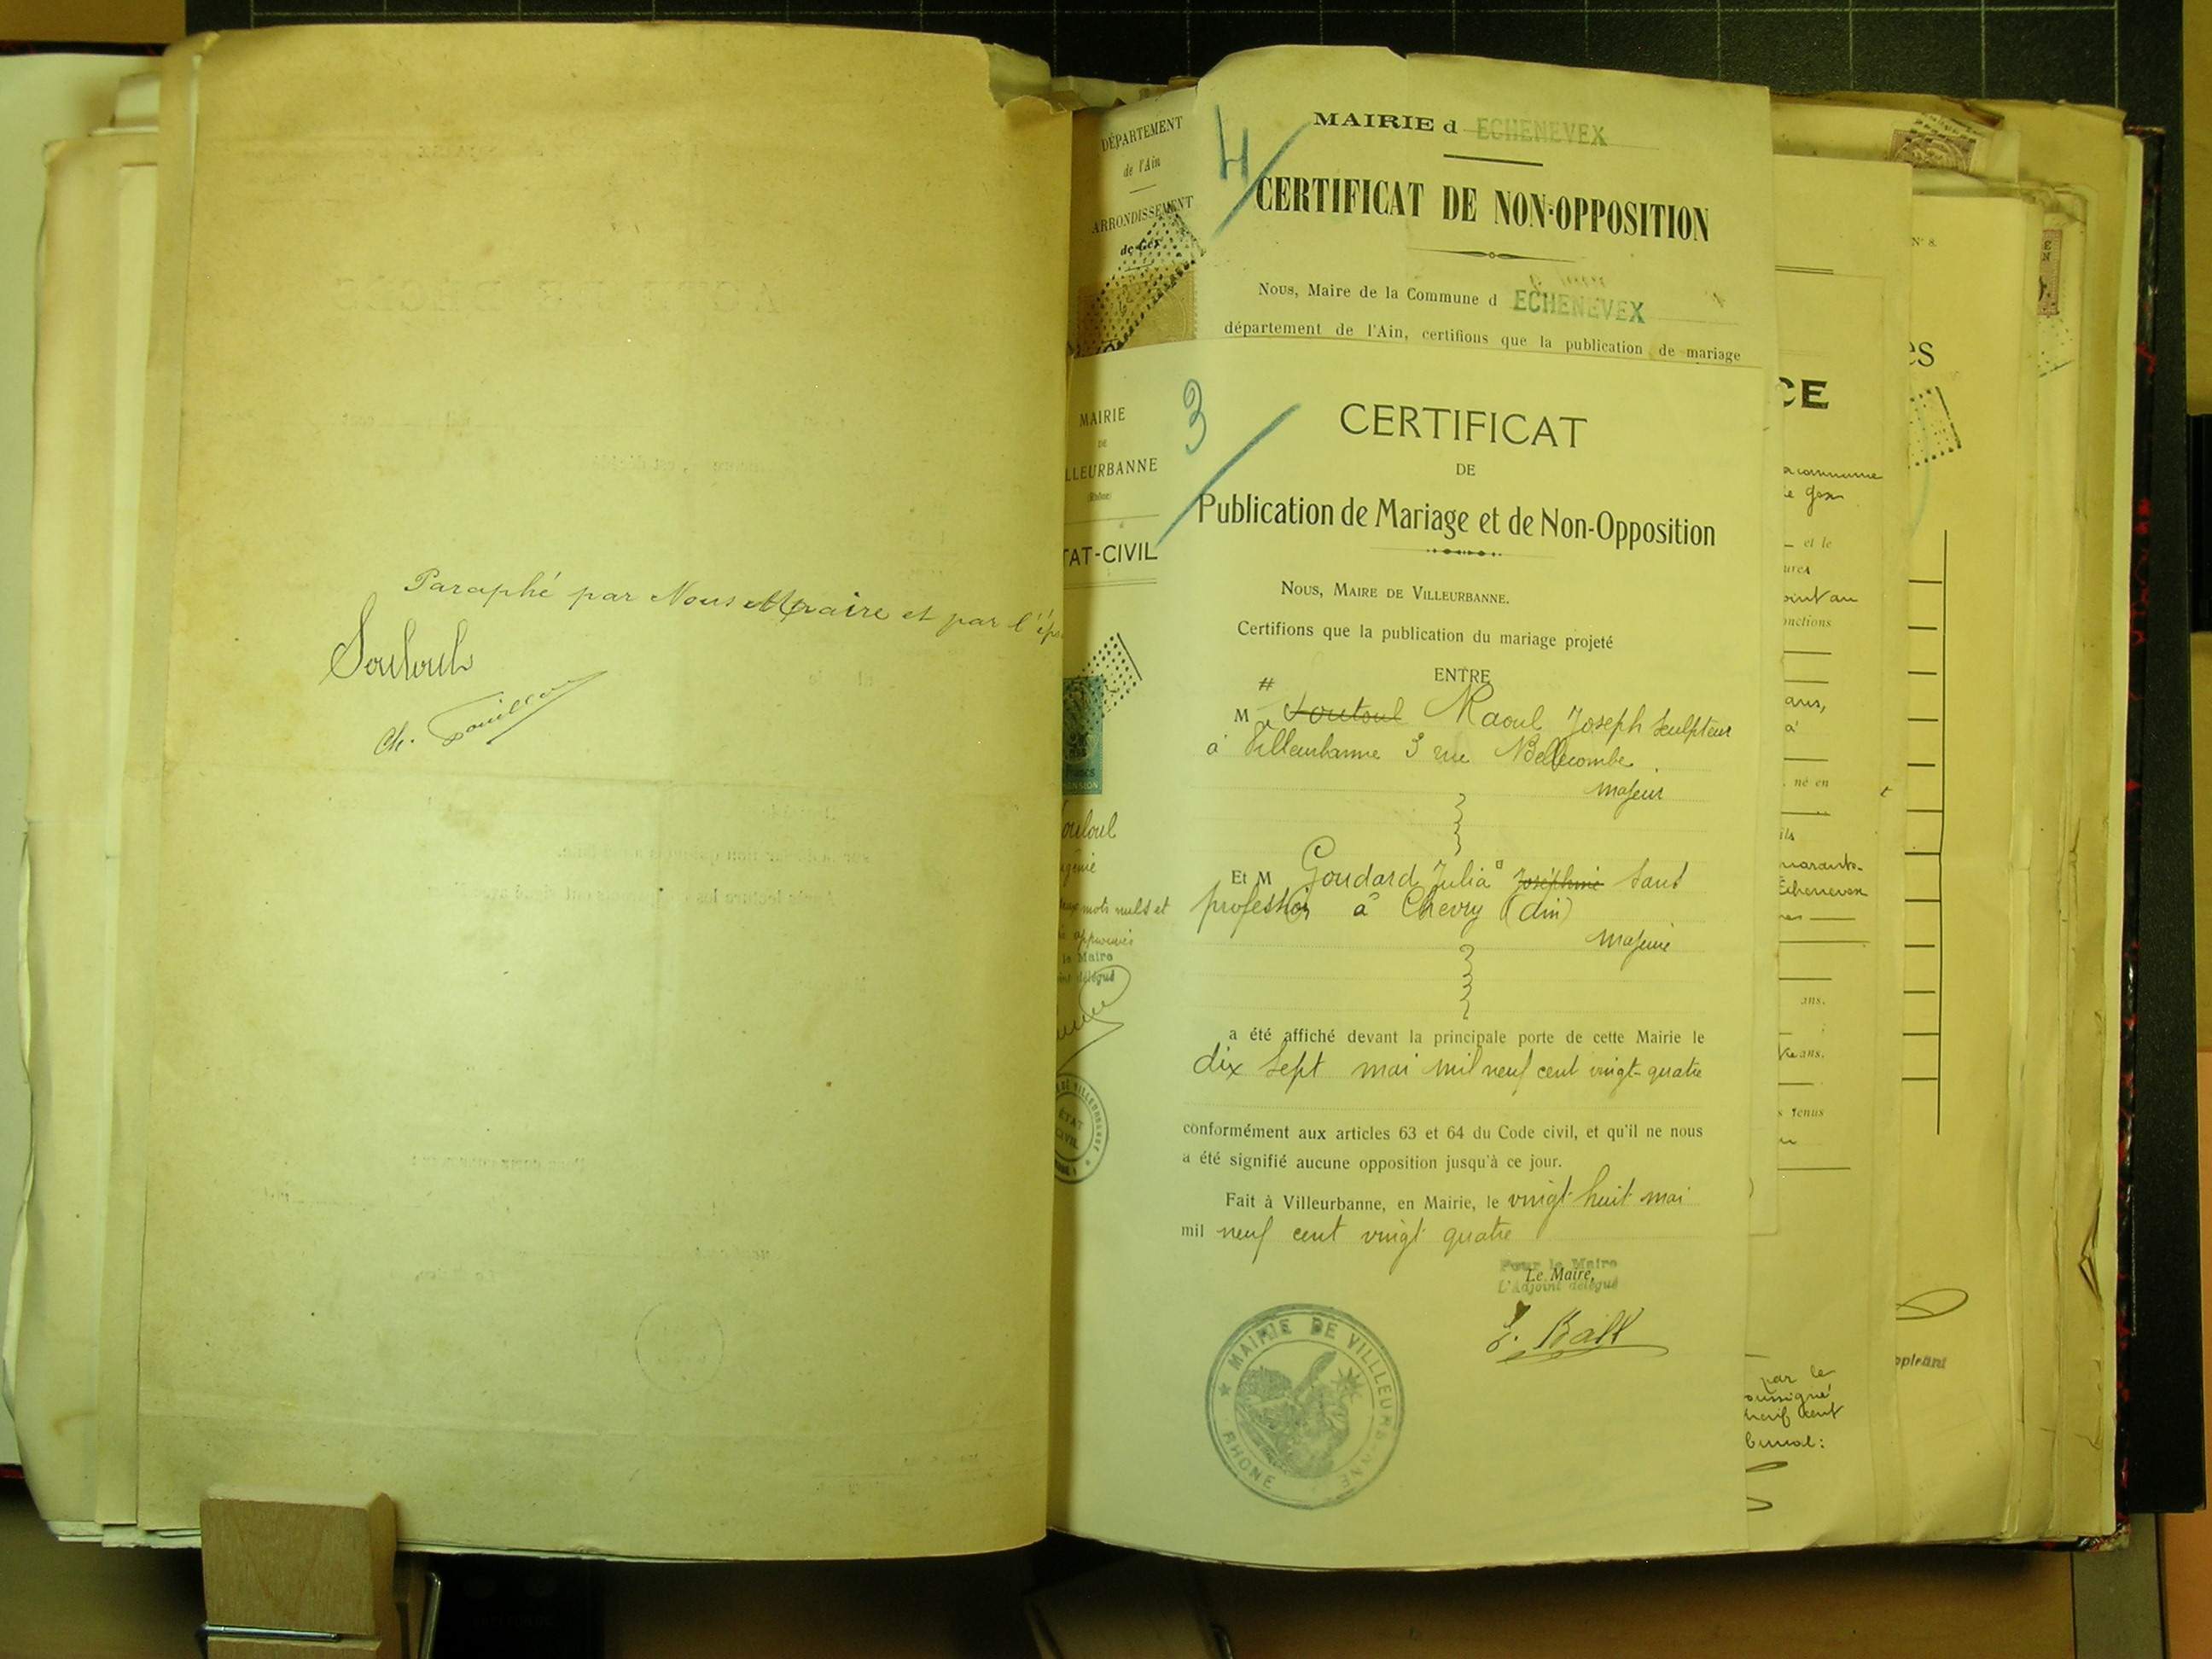 Paraphé par Nous Maire et par l'
Souloul
Ch.
DÉPARTEMENT
de l'Ain
ARRONDISSEMENT
de Gex
4
MAIRIE d ECHENEVEX
CERTIFICAT DE NON-OPPOSITION
Nous, Maire de la Commune d ECHENEVEX
département de l'Ain, certifions que la publication de mariage
MAIRIE
DE
LLEURBANNE
(Rhône)
TAT-CIVIL
3
CERTIFICAT
DE
Publication de Mariage et de Non-Opposition
NOUS, MAIRE DE VILLEURBANNE.
Certifions que la publication du mariage projeté
ENTRE
#
M Soutoul Raoul Joseph Sculpteur
à Villeurbanne 3 rue Bellecombe
majeur
Et M Goudard Julia Joséphine Sans
profession à Chevry (Ain)
majeure
a été affiché devant la principale porte de cette Mairie le
dix sept mai mil neuf cent vingt-quatre
conformément aux articles 63 et 64 du Code civil, et qu'il ne nous
a été signifié aucune opposition jusqu'à ce jour.
Fait à Villeurbanne, en Mairie, le vingt huit mai
mil neuf cent vingt quatre
Pour le Maire
Le Maire,
L'Adjoint délégué
MAIRIE DE VILLEURBANNE
RHONE
ouloul
génie
mots nuls et
approuvés
le Maire
délégué
ÉTAT
CIVIL
N° 8.
ES
CE
commune
de Gex
et le
oint au
onctions
ans,
à
né en
ils
quarante-
Echenevex
ans.
ans.
s tenus
par le
oussigné
neuf cent
bunal:
ppléant